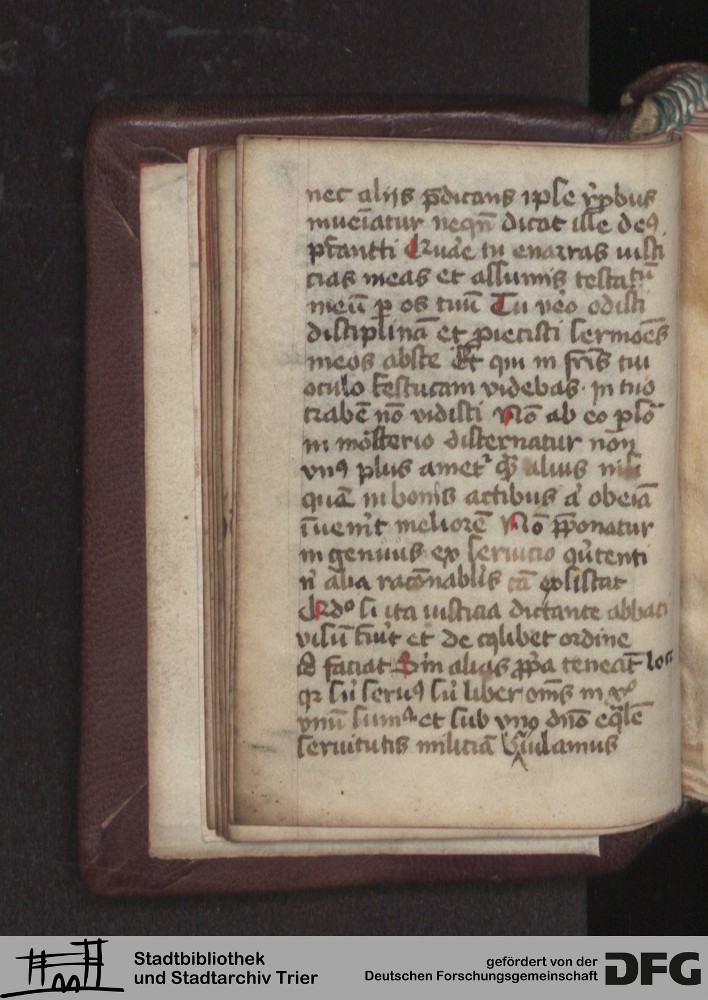 nec alijs p̄dicans ip̄e r̓p̱bus
inueīatur neqn̄ dicat ille deꝰ
pc̄antti Quare tu enarras iusti
cias meas et assumis testatū
meū ꝑ os tuū Tu vēo odisti
disciplinā et ꝓiecisti sermōes
meos abste Et qui in fr̄is tui
oculo festucam videbas · in tuo
trabē nō vidisti Nō ab eo ꝑsō
in mōsterio discernatur non
vnꝰ plus ametʳ qͣꝫ alius nisi
quā in bonis actibus aͭ obeīa
īuen̓it meliorē Nō p̄ponatur
ingenuus ex seruicio ꝯu̓tenti
nͥ alia racōnabl̓is cā existat
Qͦdͦ si ita iusticia dictante abbati
visū fu̓it et de cuiꝰlibet ordine
id faciat Sin alias ꝓpͥa teneāt loca
qꝛ siū seruꝰ siū liber om̄s in xͦ
vnū sumꝰ et sub vno dn̄o eq̄lē
seruitutis miliciā baiulamus
Stadtbibliothek
und Stadtarchiv Trier
gefördert von der
Deutschen Forschungsgemeinschaft
DFG